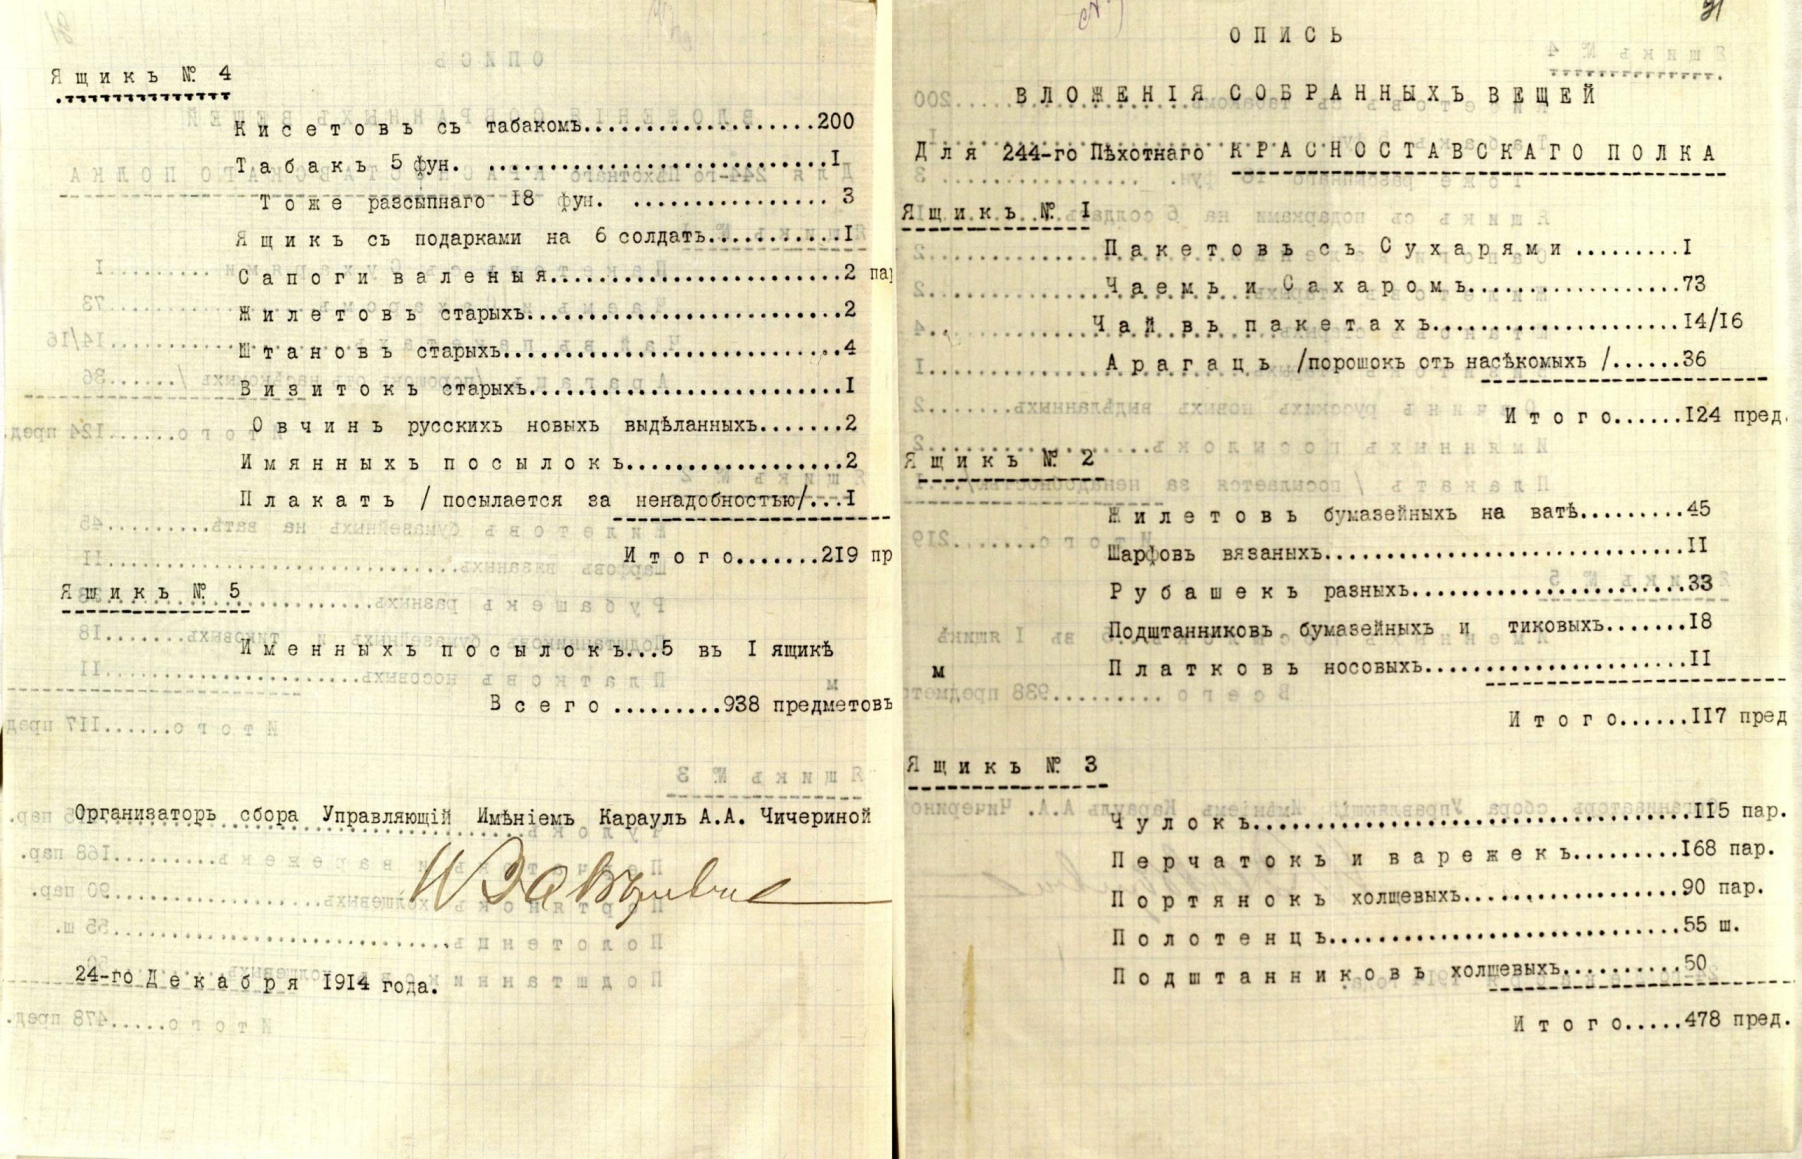 Ящикъ № 4
Кисетовъ съ табакомъ....................200
Табакъ 5 фун. .............................I
Тоже разсыпнаго I8 фун. ................ 3
Ящикъ съ подарками на 6 солдатъ...........I
Сапоги валеныя...........................2 пар
Жилетовъ старыхъ...........................2
Штановъ старыхъ............................4
Визитокъ старыхъ...........................I
Овчинъ русскихъ новыхъ выдѣланныхъ.......2
Имянныхъ посылокъ..................2
Плакатъ /посылается за ненадобностью/...I
Итого.......219 пр
Ящикъ № 5
Именныхъ посылокъ...5 въ I ящикѣ
Всего .........938 предметовъ
Организаторъ сбора Управляющій Имѣніемъ Карауль А.А. Чичериной
24-го Декабря I9I4 года.
31
ОПИСЬ
ВЛОЖЕНІЯ СОБРАННЫХЪ ВЕЩЕЙ
Для 244-го Пѣхотнаго КРАСНОСТАВСКАГО ПОЛКА
Ящикъ № I
Пакетовъ съ Сухарями .........I
Чаемъ и Сахаромъ..................73
Чай въ пакетахъ.....................I4/I6
Арагацъ /порошокъ отъ насѣкомыхъ /......36
Итого......I24 пред.
Ящикъ № 2
Жилетовъ бумазейныхъ на ватѣ.........45
Шарфовъ вязаныхъ..............................II
Рубашекъ разныхъ.......................33
Подштанниковъ бумазейныхъ и тиковыхъ.......I8
м
Платковъ носовыхъ......................II
Итого......II7 пред
Ящикъ № 3
Чулокъ.....................................II5 пар.
Перчатокъ и варежекъ.........I68 пар.
Портянокъ холщевыхъ..................90 пар.
Полотенцъ..............................55 ш.
Подштанниковъ холщевыхъ..........50
Итого.....478 пред.